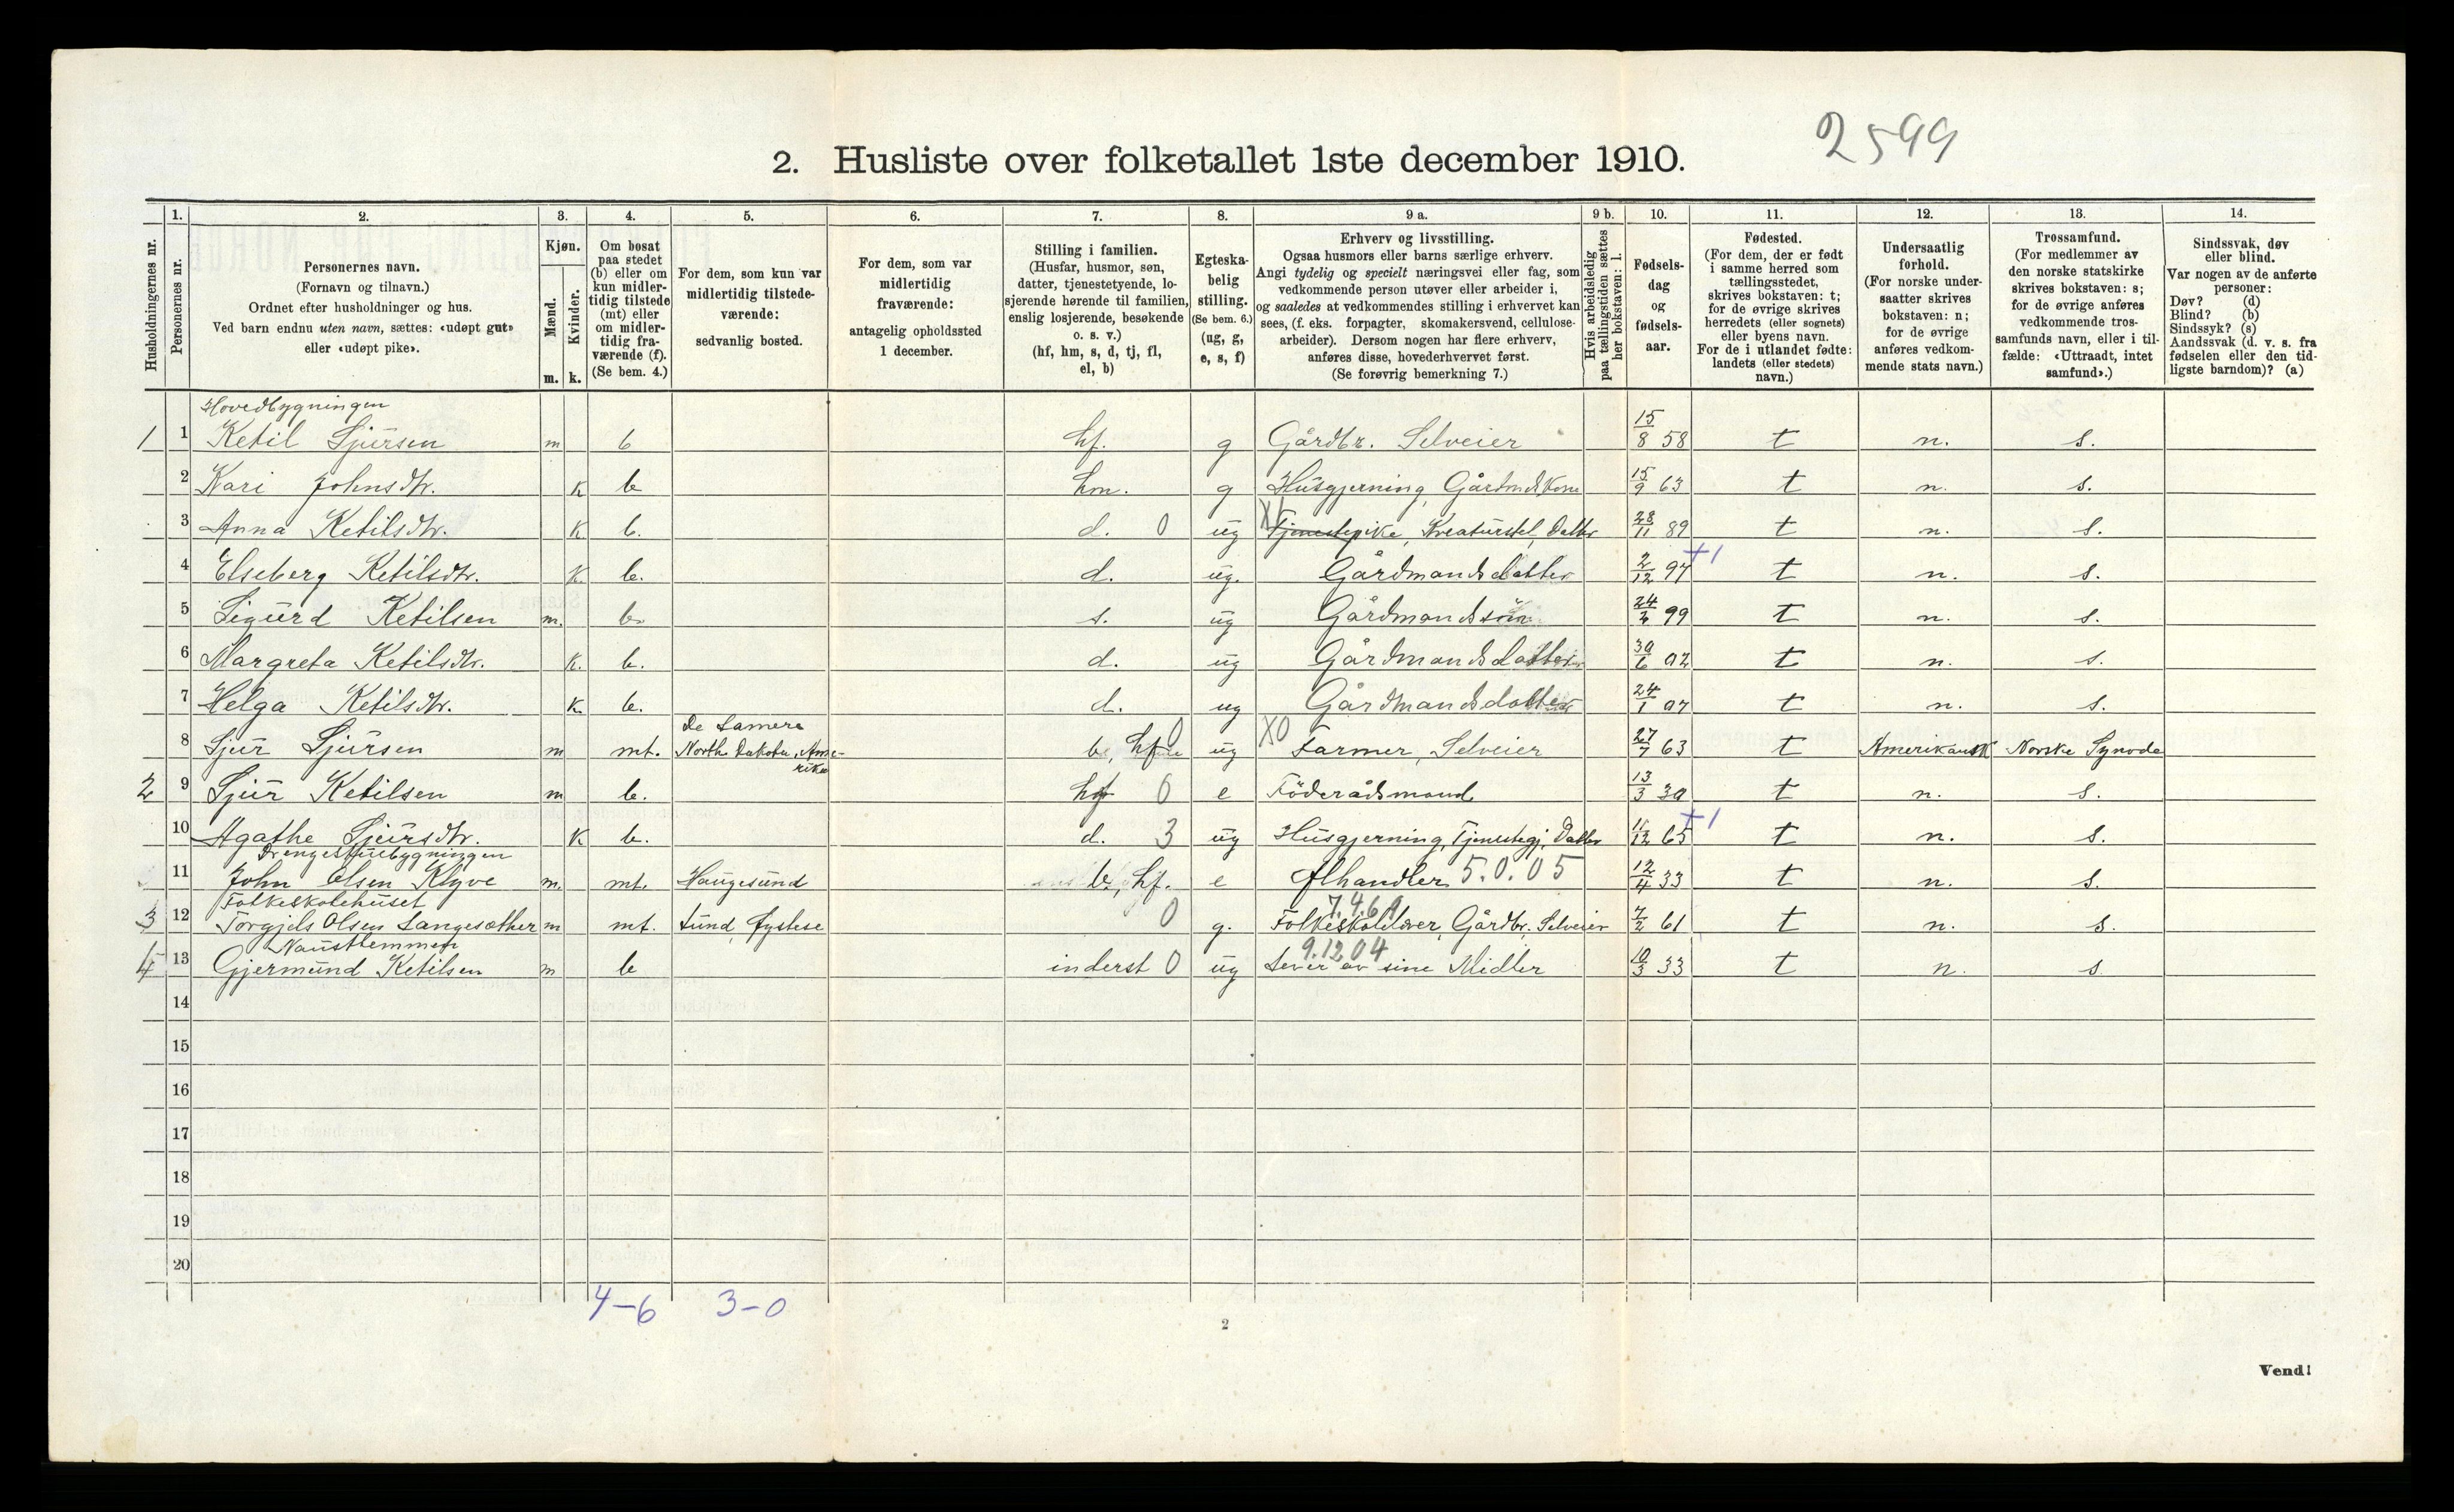 2599
2. Husliste over folketallet 1ste december 1910.
Husholdningernes nr.
1. Personernes nr.
2. Personernes navn. (Fornavn og tilnavn.) Ordnet efter husholdninger og hus. Ved barn endnu uten navn, sættes: «udøpt gut» eller «udøpt pike».
3. Kjøn. Mænd. m. Kvinder. k.
4. Om bosat paa stedet (b) eller om kun midlertidig tilstede (mt) eller om midlertidig fraværende (f). (Se bem. 4.)
5. For dem, som kun var midlertidig tilstedeværende: sedvanlig bosted.
6. For dem, som var midlertidig fraværende: antagelig opholdssted 1 december.
7. Stilling i familien. (Husfar, husmor, søn, datter, tjenestetyende, losjerende hørende til familien, enslig losjerende, besøkende o. s. v.) (hf, hm, s, d, tj, fl, el, b)
8. Egteskabelig stilling. (Se bem. 6.) (ug, g, e, s, f)
9 a. Erhverv og livsstilling. Ogsaa husmors eller barns særlige erhverv. Angi tydelig og specielt næringsvei eller fag, som vedkommende person utøver eller arbeider i, og saaledes at vedkommendes stilling i erhvervet kan sees, (f. eks. forpagter, skomakersvend, cellulosearbeider). Dersom nogen har flere erhverv, anføres disse, hovederhvervet først. (Se forøvrig bemerkning 7.)
9 b. Hvis arbeidsledig paa tællingstiden sættes her bokstaven: l.
10. Fødselsdag og fødselsaar.
11. Fødested. (For dem, der er født i samme herred som tællingsstedet, skrives bokstaven: t; for de øvrige skrives herredets (eller sognets) eller byens navn. For de i utlandet fødte: landets (eller stedets) navn.)
12. Undersaatlig forhold. (For norske undersaatter skrives bokstaven: n; for de øvrige anføres vedkommende stats navn.)
13. Trossamfund. (For medlemmer av den norske statskirke skrives bokstaven: s; for de øvrige anføres vedkommende trossamfunds navn, eller i tilfælde: «Uttraadt, intet samfund».)
14. Sindssvak, døv eller blind. Var nogen av de anførte personer: Døv? (d) Blind? (b) Sindssyk? (s) Aandssvak (d. v. s. fra fødselen eller den tidligste barndom)? (a)
Hovedbygningen
1 1 Ketil Sjursen m b hf. g Gårdbr. Selveier 15/8 58 t n. s.
2 Kari Johnsdtr. k b hm. g Husgjerning, Gårdmdskone 15/9 63 t n. s.
3 Anna Ketilsdtr. k b. d. 0 ug Tjenestepike, Kreaturstel, Datter 28/11 89 t n. s.
4 Elseberg Ketilsdtr. k. b. d. ug. Gårdmandsdatter 2/12 97 +1 t n. s.
5 Sigurd Ketilsen m. b. s. ug Gårdmandssön 24/2 99 t n. s.
6 Margreta Ketilsdtr. k. b. d. ug Gårdmandsdatter 30/6 02 t n. s.
7 Helga Ketilsdtr. k. b. d. ug Gårdmandsdatter 24/1 07 t n. s.
De Lamere
8 Sjur Sjursen m mt. North Dakota, Amerika b, hf 0 ug X0 Farmer, Selveier 27/7 63 t Amerikansk Norske Synode
2 9 Sjur Ketilsen m b. hf 0 e Föderådsmand 13/3 30 t n. s.
10 Agathe Sjursdtr. k b. d. 3 ug Husgjerning, Tjenestegj, Datter 11/12 65 +1 t n. s.
Drengestuebygningen
11 John Olsen Klyve m. mt. Haugesund b, hf. e Ølhandler 5.0.05 12/4 33 t n. s.
Folkeskolehuset
7.4.6.1
3 12 Torgjels Olsen Langesæther m mt. Lund, Fystese 0 g. Folkeskolelærer, Gårdbr. Selveier 7/2 61 t n. s.
Naustlemmen
9.12 04
4 13 Gjermund Ketilsen m b inderst 0 ug Lever av sine Midler 10/3 33 t n. s.
14
15
16
17
18
19
20
4-6 3-0
2
Vend!